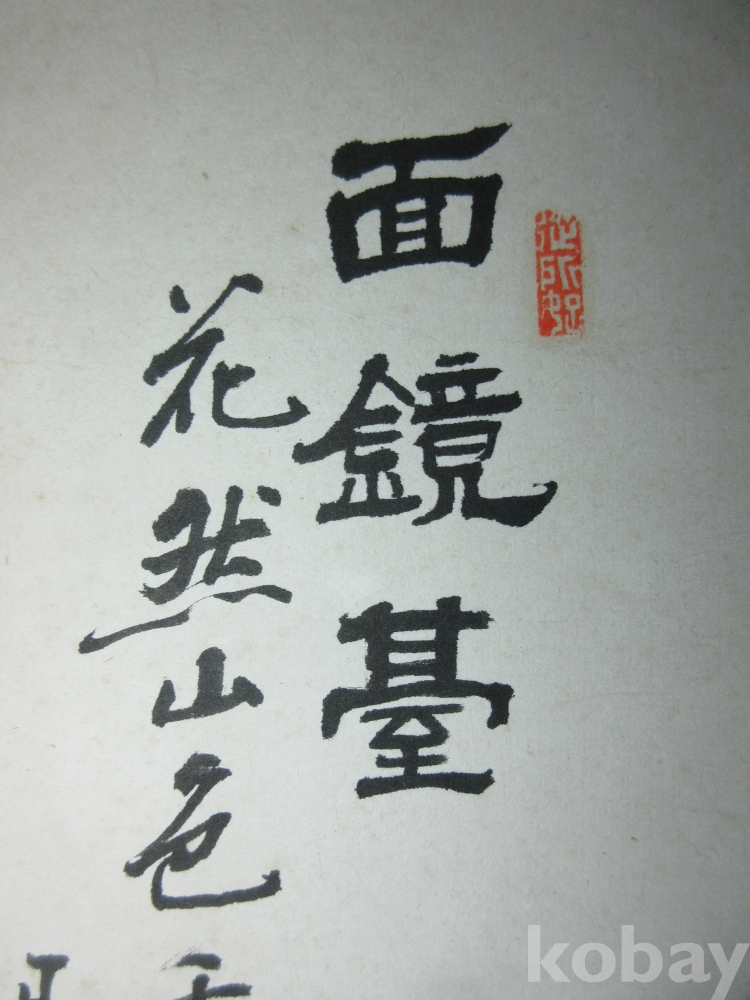 面鏡臺
花然山色
kobay